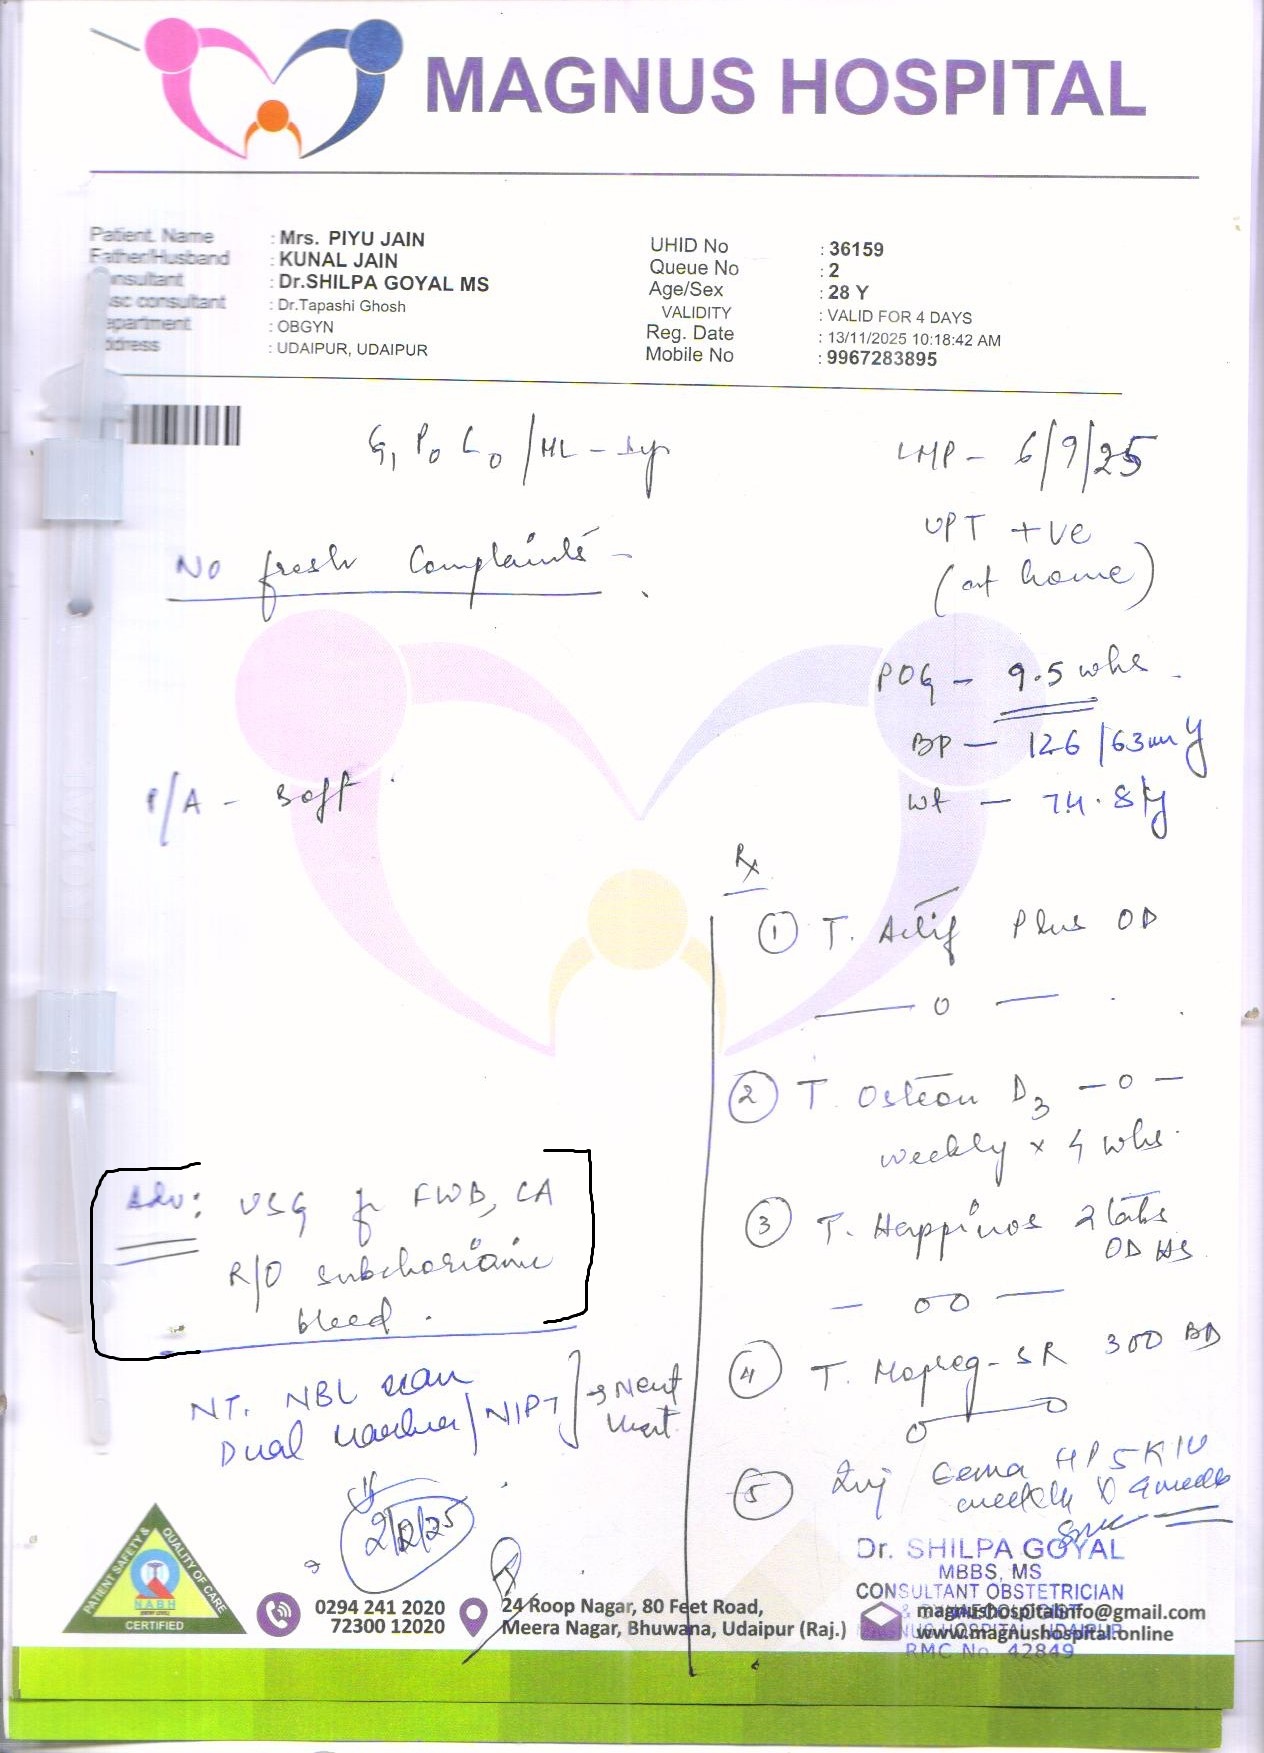 MAGNUS HOSPITAL
Patient. Name : Mrs. PIYU JAIN
Father/Husband : KUNAL JAIN
onsultant : Dr.SHILPA GOYAL MS
sc consultant : Dr.Tapashi Ghosh
epartment : OBGYN
ddress : UDAIPUR, UDAIPUR
UHID No : 36159
Queue No : 2
Age/Sex : 28 Y
VALIDITY : VALID FOR 4 DAYS
Reg. Date : 13/11/2025 10:18:42 AM
Mobile No : 9967283895
G1 P0 L0 / ML -
LMP - 6/9/25
UPT +ve
(at home)
No fresh Complaints -
POG - 9.5 wks
BP - 126/63
Wt - 74.8 kg
P/A - Soft
Rx
① T. Plus OD
— 0 —
② T. Osteon D3 — 0 —
weekly x 4 wks.
③ T. Happinos 2 tabs
OD HS
— 00 —
④ T. SR 300 BD
0 — 0
⑤ Inj Gema HP 5K IU
weekly x 4 weeks
Adv: USG for FWB, CA
R/O subchorionic
bleed.
NT. NBL scan
Dual marker / NIPT ] → Next
visit
2/12/25
Dr. SHILPA GOYAL
MBBS, MS
CONSULTANT OBSTETRICIAN
RMC No. 42849
PATIENT SAFETY & QUALITY OF CARE
NABH
CERTIFIED
0294 241 2020
72300 12020
24 Roop Nagar, 80 Feet Road,
Meera Nagar, Bhuwana, Udaipur (Raj.)
magnushospitalinfo@gmail.com
www.magnushospital.online